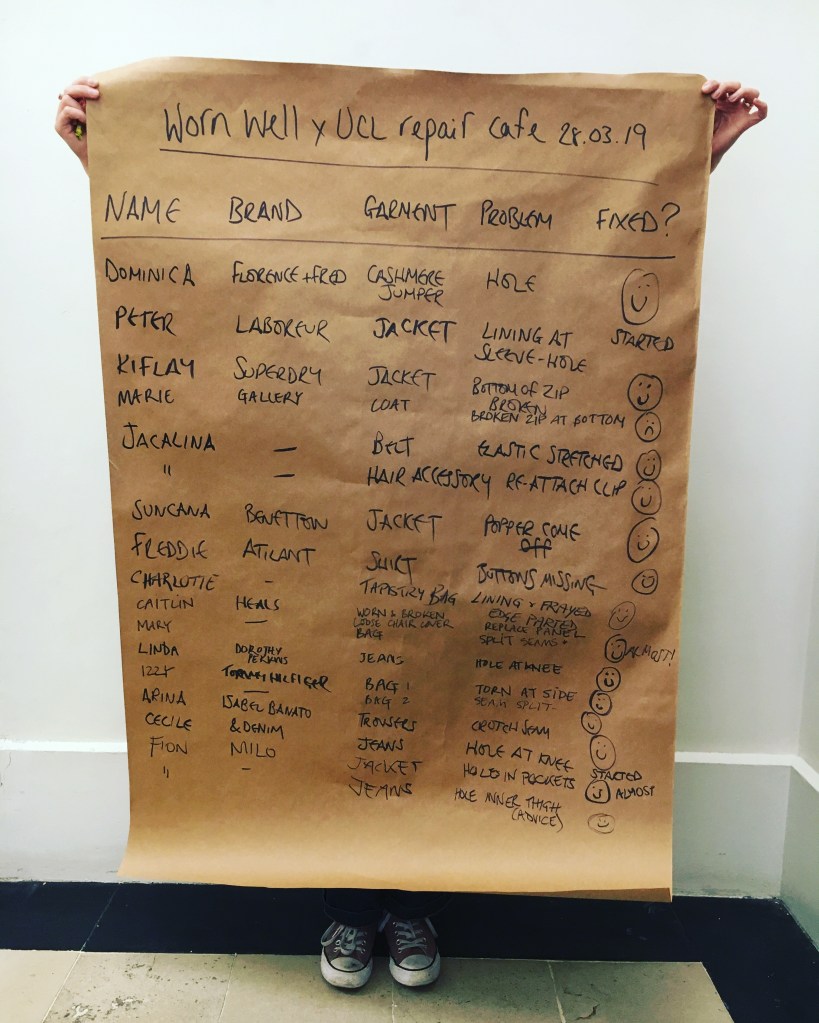 Worn Well x UCL repair cafe 28.03.19
NAME BRAND GARMENT PROBLEM FIXED?
DOMINICA FLORENCE + FRED CASHMERE JUMPER HOLE
PETER LABOREUR JACKET LINING AT SLEEVE-HOLE STARTED
KIFLAY SUPERDRY JACKET BOTTOM OF ZIP BROKEN
MARIE GALLERY COAT BROKEN ZIP AT BOTTOM
JACALINA — BELT ELASTIC STRETCHED
" — HAIR ACCESSORY RE-ATTACH CLIP
SUNCANA BENETTON JACKET POPPER COME OFF
FREDDIE ATILANT SHIRT BUTTONS MISSING
CHARLOTTE - TAPESTRY BAG LINING & FRAYED EDGE PARTED
CAITLIN HEALS WORN & BROKEN LOOSE CHAIR COVER REPLACE PANEL
MARY — BAG SPLIT SEAMS ALMOST!
LINDA DOROTHY PERKINS JEANS HOLE AT KNEE
IZZY TOMMY HILFIGER BAG 1 TORN AT SIDE
— BAG 2 SEAM SPLIT
ARINA ISABEL BANATO TROUSERS CROTCH SEAM
CECILE & DENIM JEANS HOLE AT KNEE
FION MILO JACKET HOLES IN POCKETS STARTED ALMOST
" - JEANS HOLE INNER THIGH (ADVICE)